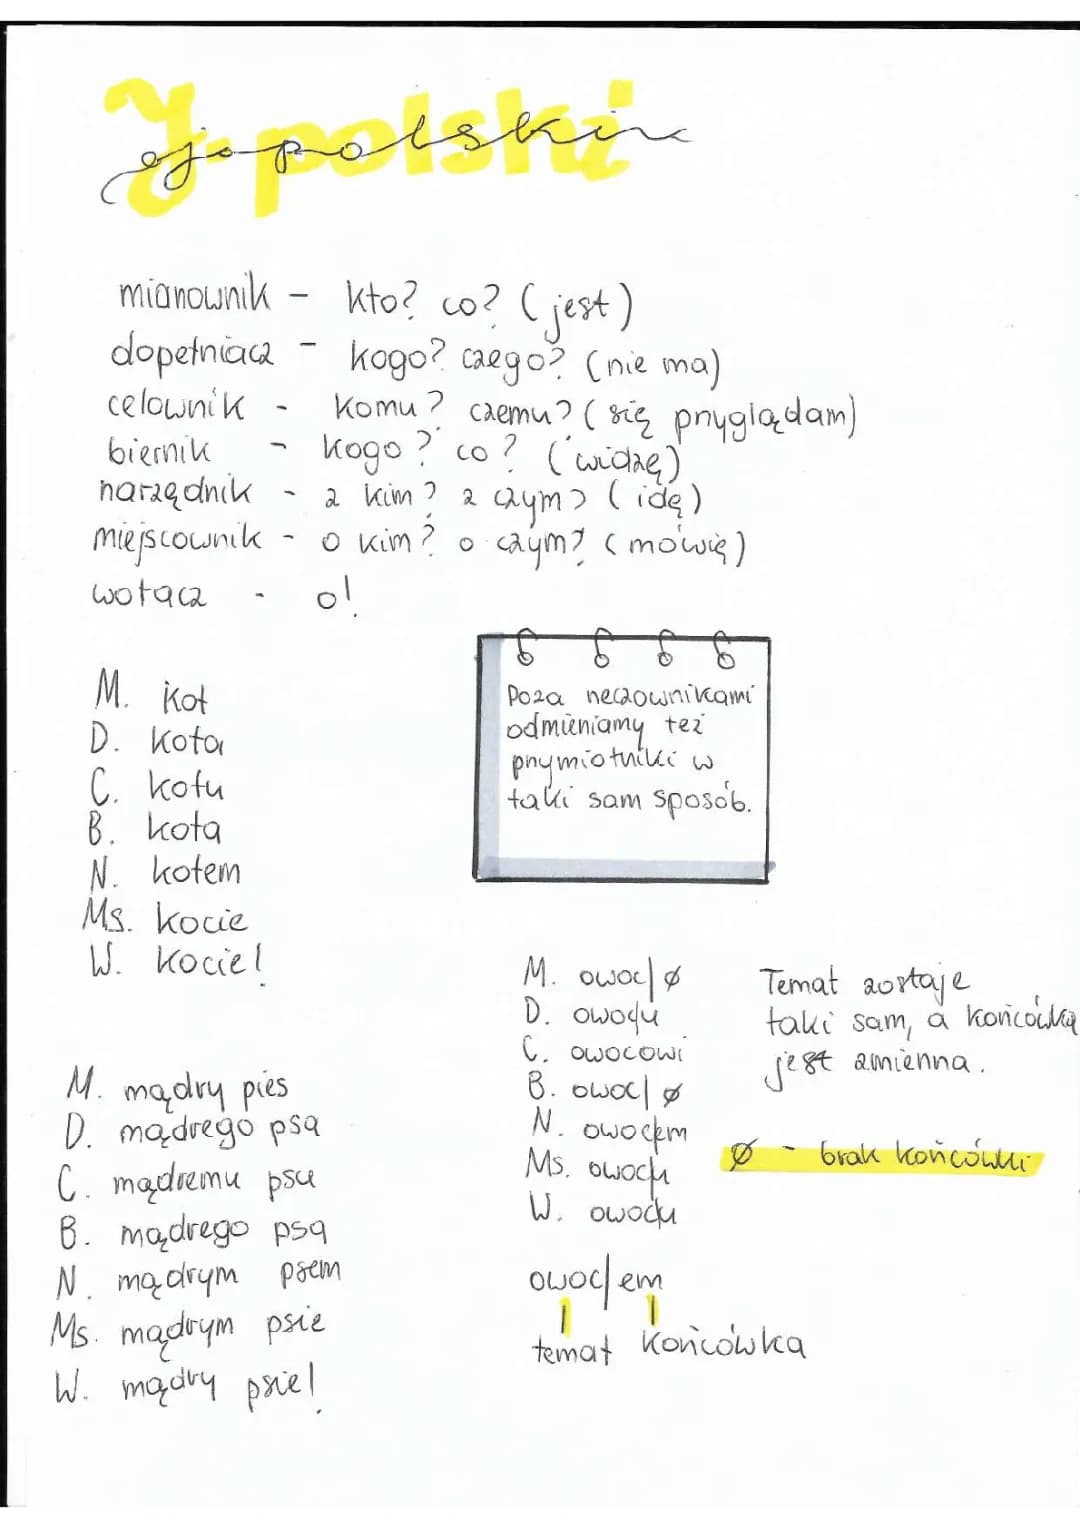 J. polski
mianownik - kto? co? (jest)
dopełniacz - kogo? czego? (nie ma)
celownik - komu? czemu? (się przyglądam)
biernik - kogo? co? (widzę)
narzędnik - z kim? z czym? (idę)
miejscownik - o kim? o czym? (mówię)
wołacz - o!
M. kot
D. kota
C. kotu
B. kota
N. kotem
Ms. kocie
W. kocie!
Poza rzeczownikami
odmieniamy też
przymiotniki w
taki sam sposób.
M. mądry pies
D. mądrego psa
C. mądremu psu
B. mądrego psa
N. mądrym psem
Ms. mądrym psie
W. mądry psie!
M. owoc|ø
D. owoc|u
C. owocowi
B. owoc|ø
N. owoc|em
Ms. owoc|u
W. owoc|u
owoc|em
temat końcówka
Temat zostaje
taki sam, a końcówka
jest zmienna.
ø - brak końcówki